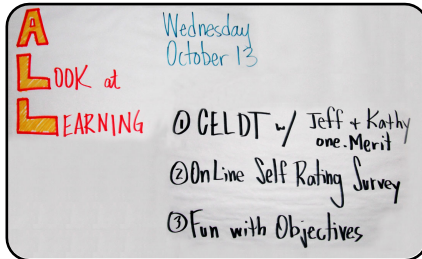 A
LOOK at
LEARNING
Wednesday
October 13
① CELDT w/ Jeff + Kathy
one.Merit
② OnLine Self Rating Survey
③ Fun with Objectives